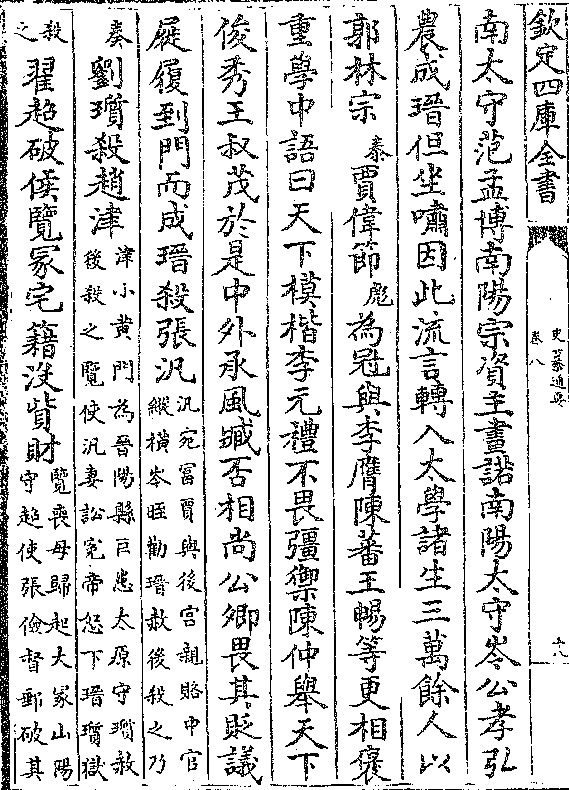 欽定四庫全書
史纂通要
卷八
十八
南太守范孟博南陽宗資主畫諾南陽太守岑公孝弘
農成瑨但坐嘯因此流言轉入太學諸生三萬餘人以
郭林宗泰賈偉節彪為冠與李膺陳蕃王暢等更相褒
重學中語曰天下模楷李元禮不畏彊禦陳仲舉天下
俊秀王叔茂於是中外承風臧否相尚公卿畏其貶議
屣履到門而成瑨殺張汎汎宛富賈與後宮親賂中官縱橫岑晊勸瑨赦後殺之乃
奏劉瓆殺趙津津小黄門為晉陽縣巨患太原守瓆赦後殺之覽使汎妻訟寃帝怒下瑨瓆獄
殺之翟超破侯覽冢宅籍没貲財覽喪母歸起大冢山陽守超使張儉督郵破其